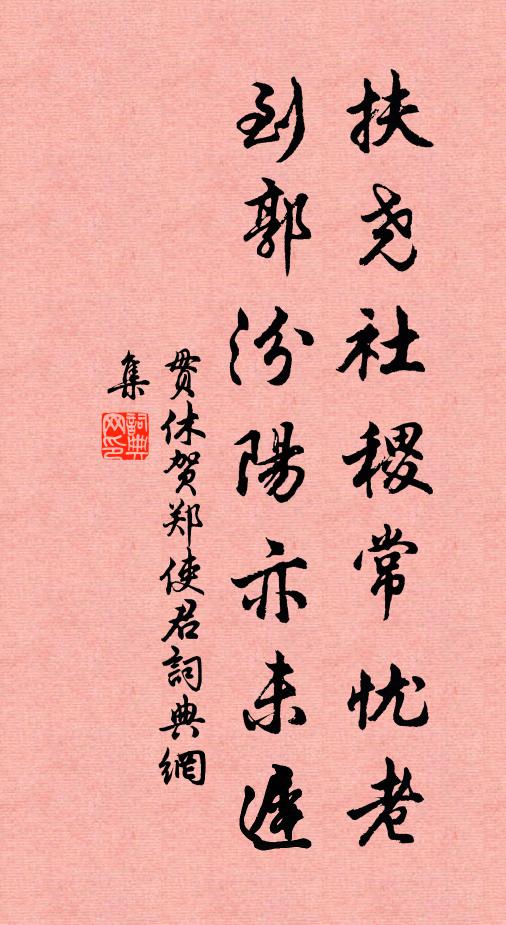 扶尧社稷常忧老
到郭汾陽亦未遲
贯休贺郑使君詞典網
集
詞典网印